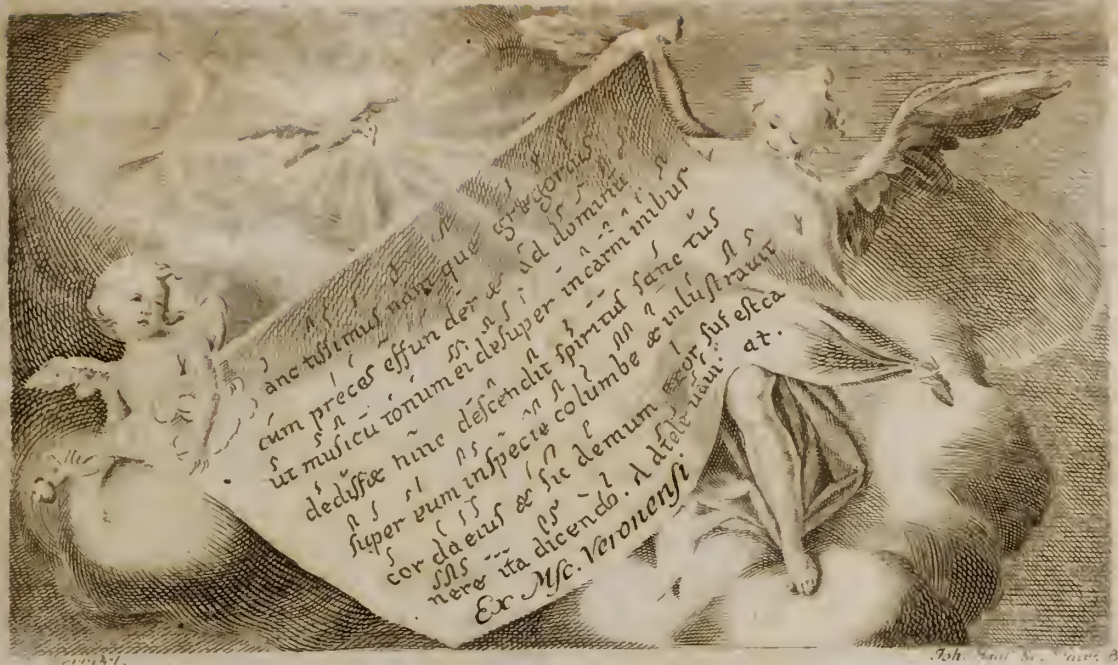 anc tissimus nam que gregorius
cúm préces effun der & ad dominū
ut musicū tonum ei desuper incarminibus
dediss& hinc descendit spiritus sanc tus
super eum inspecie columbe & inlustrauit
cor da eius & sic demum Exor sus est ca
nere ita dicendo. A dte leuaui at.
Ex Msc. Veronensi
Joh.